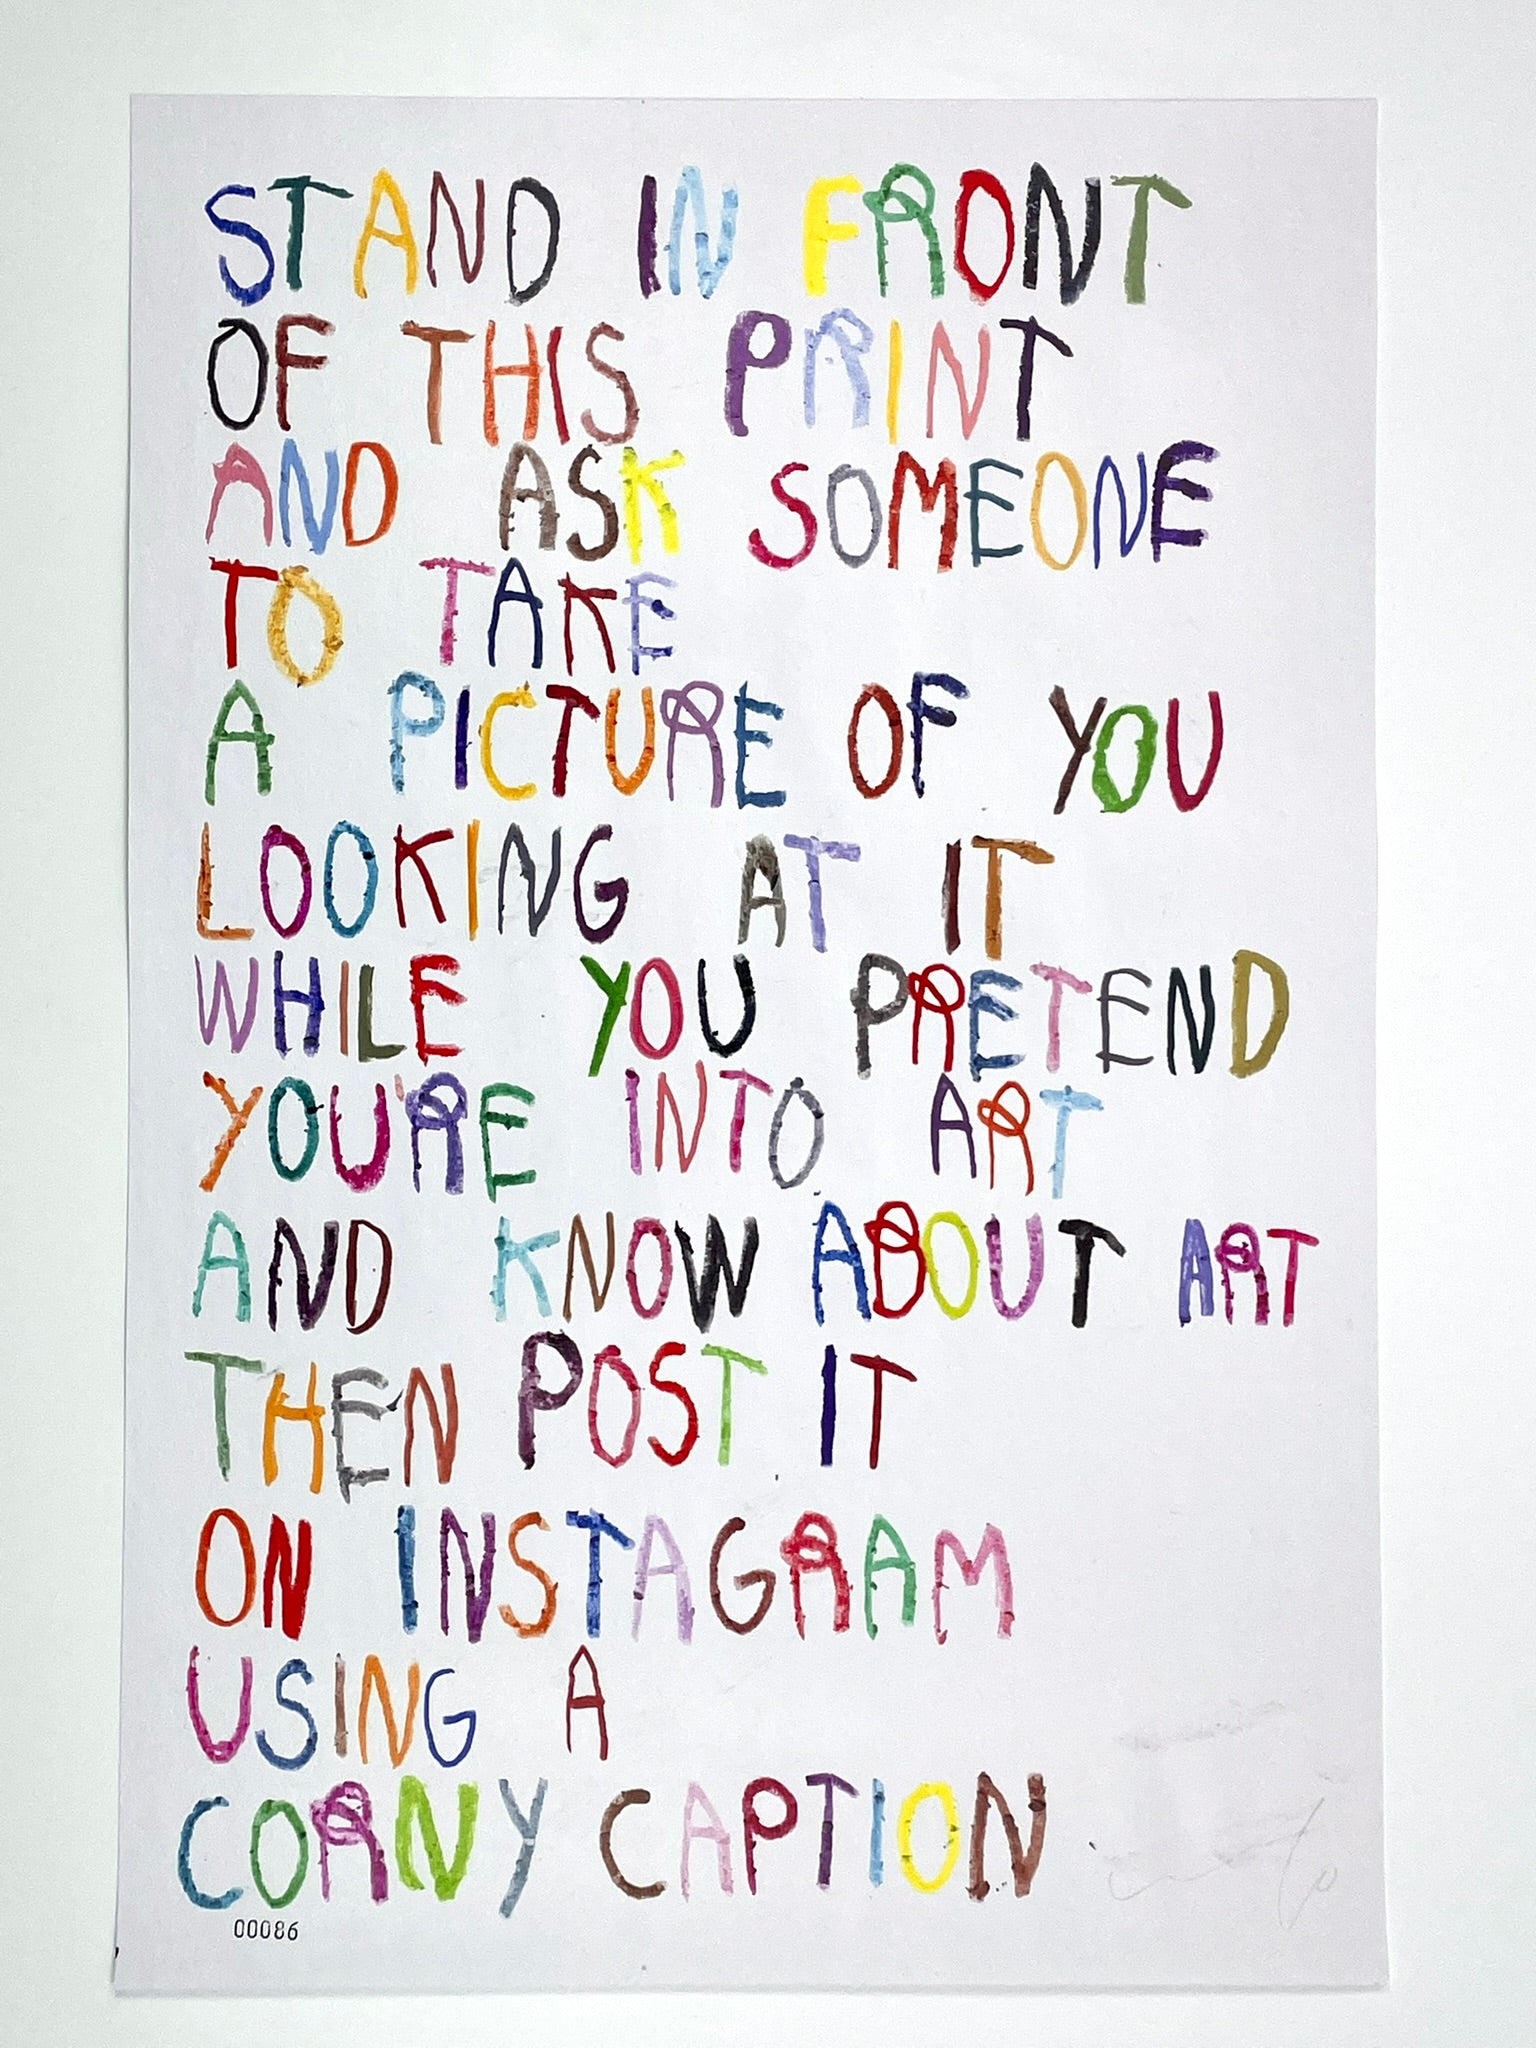 STAND IN FRONT
OF THIS PRINT
AND ASK SOMEONE
TO TAKE
A PICTURE OF YOU
LOOKING AT IT
WHILE YOU PRETEND
YOU'RE INTO ART
AND KNOW ABOUT ART
THEN POST IT
ON INSTAGRAM
USING A
CORNY CAPTION
00086